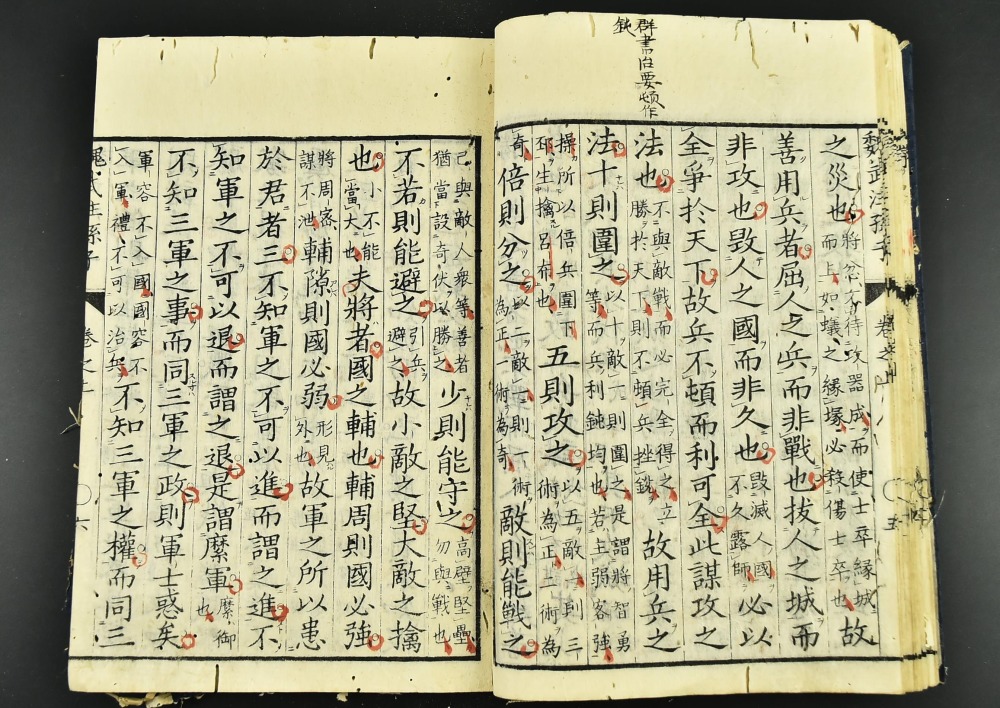 群書治要頓作
鈍
魏武注孫子 卷之上 五
之災也將忿不待攻器成而使士卒緣城而上如蟻之緣墻必殺傷士卒也故
善用兵者屈人之兵而非戰也拔人之城而
非攻也毀人之國而非久也毀滅人國不久露師也必以
全爭於天下故兵不頓而利可全此謀攻之
法也不與敵戰而必完全得之立勝於天下則不頓兵挫銳故用兵之
法十則圍之以十敵一則圍之是謂將智勇等而兵利鈍均也若主弱客強
操所以倍兵圍下邳生擒呂布也五則攻之以五敵一則三術為正二術為
奇倍則分之以二敵一則一術為正一術為奇敵則能戰之
己與敵人衆等善者猶當設奇伏以勝之少則能守之高壁堅壘勿與戰也
不若則能避之引兵避之故小敵之堅大敵之擒
也小不能當大也夫將者國之輔也輔周則國必強
將周密謀不泄輔隙則國必弱形見外也故軍之所以患
於君者三不知軍之不可以進而謂之進不
知軍之不可以退而謂之退是謂縻軍縻御也
不知三軍之事而同三軍之政則軍士惑矣
軍容不入國國容不入軍禮不可以治兵不知三軍之權而同三
魏武注孫子 卷之上 六